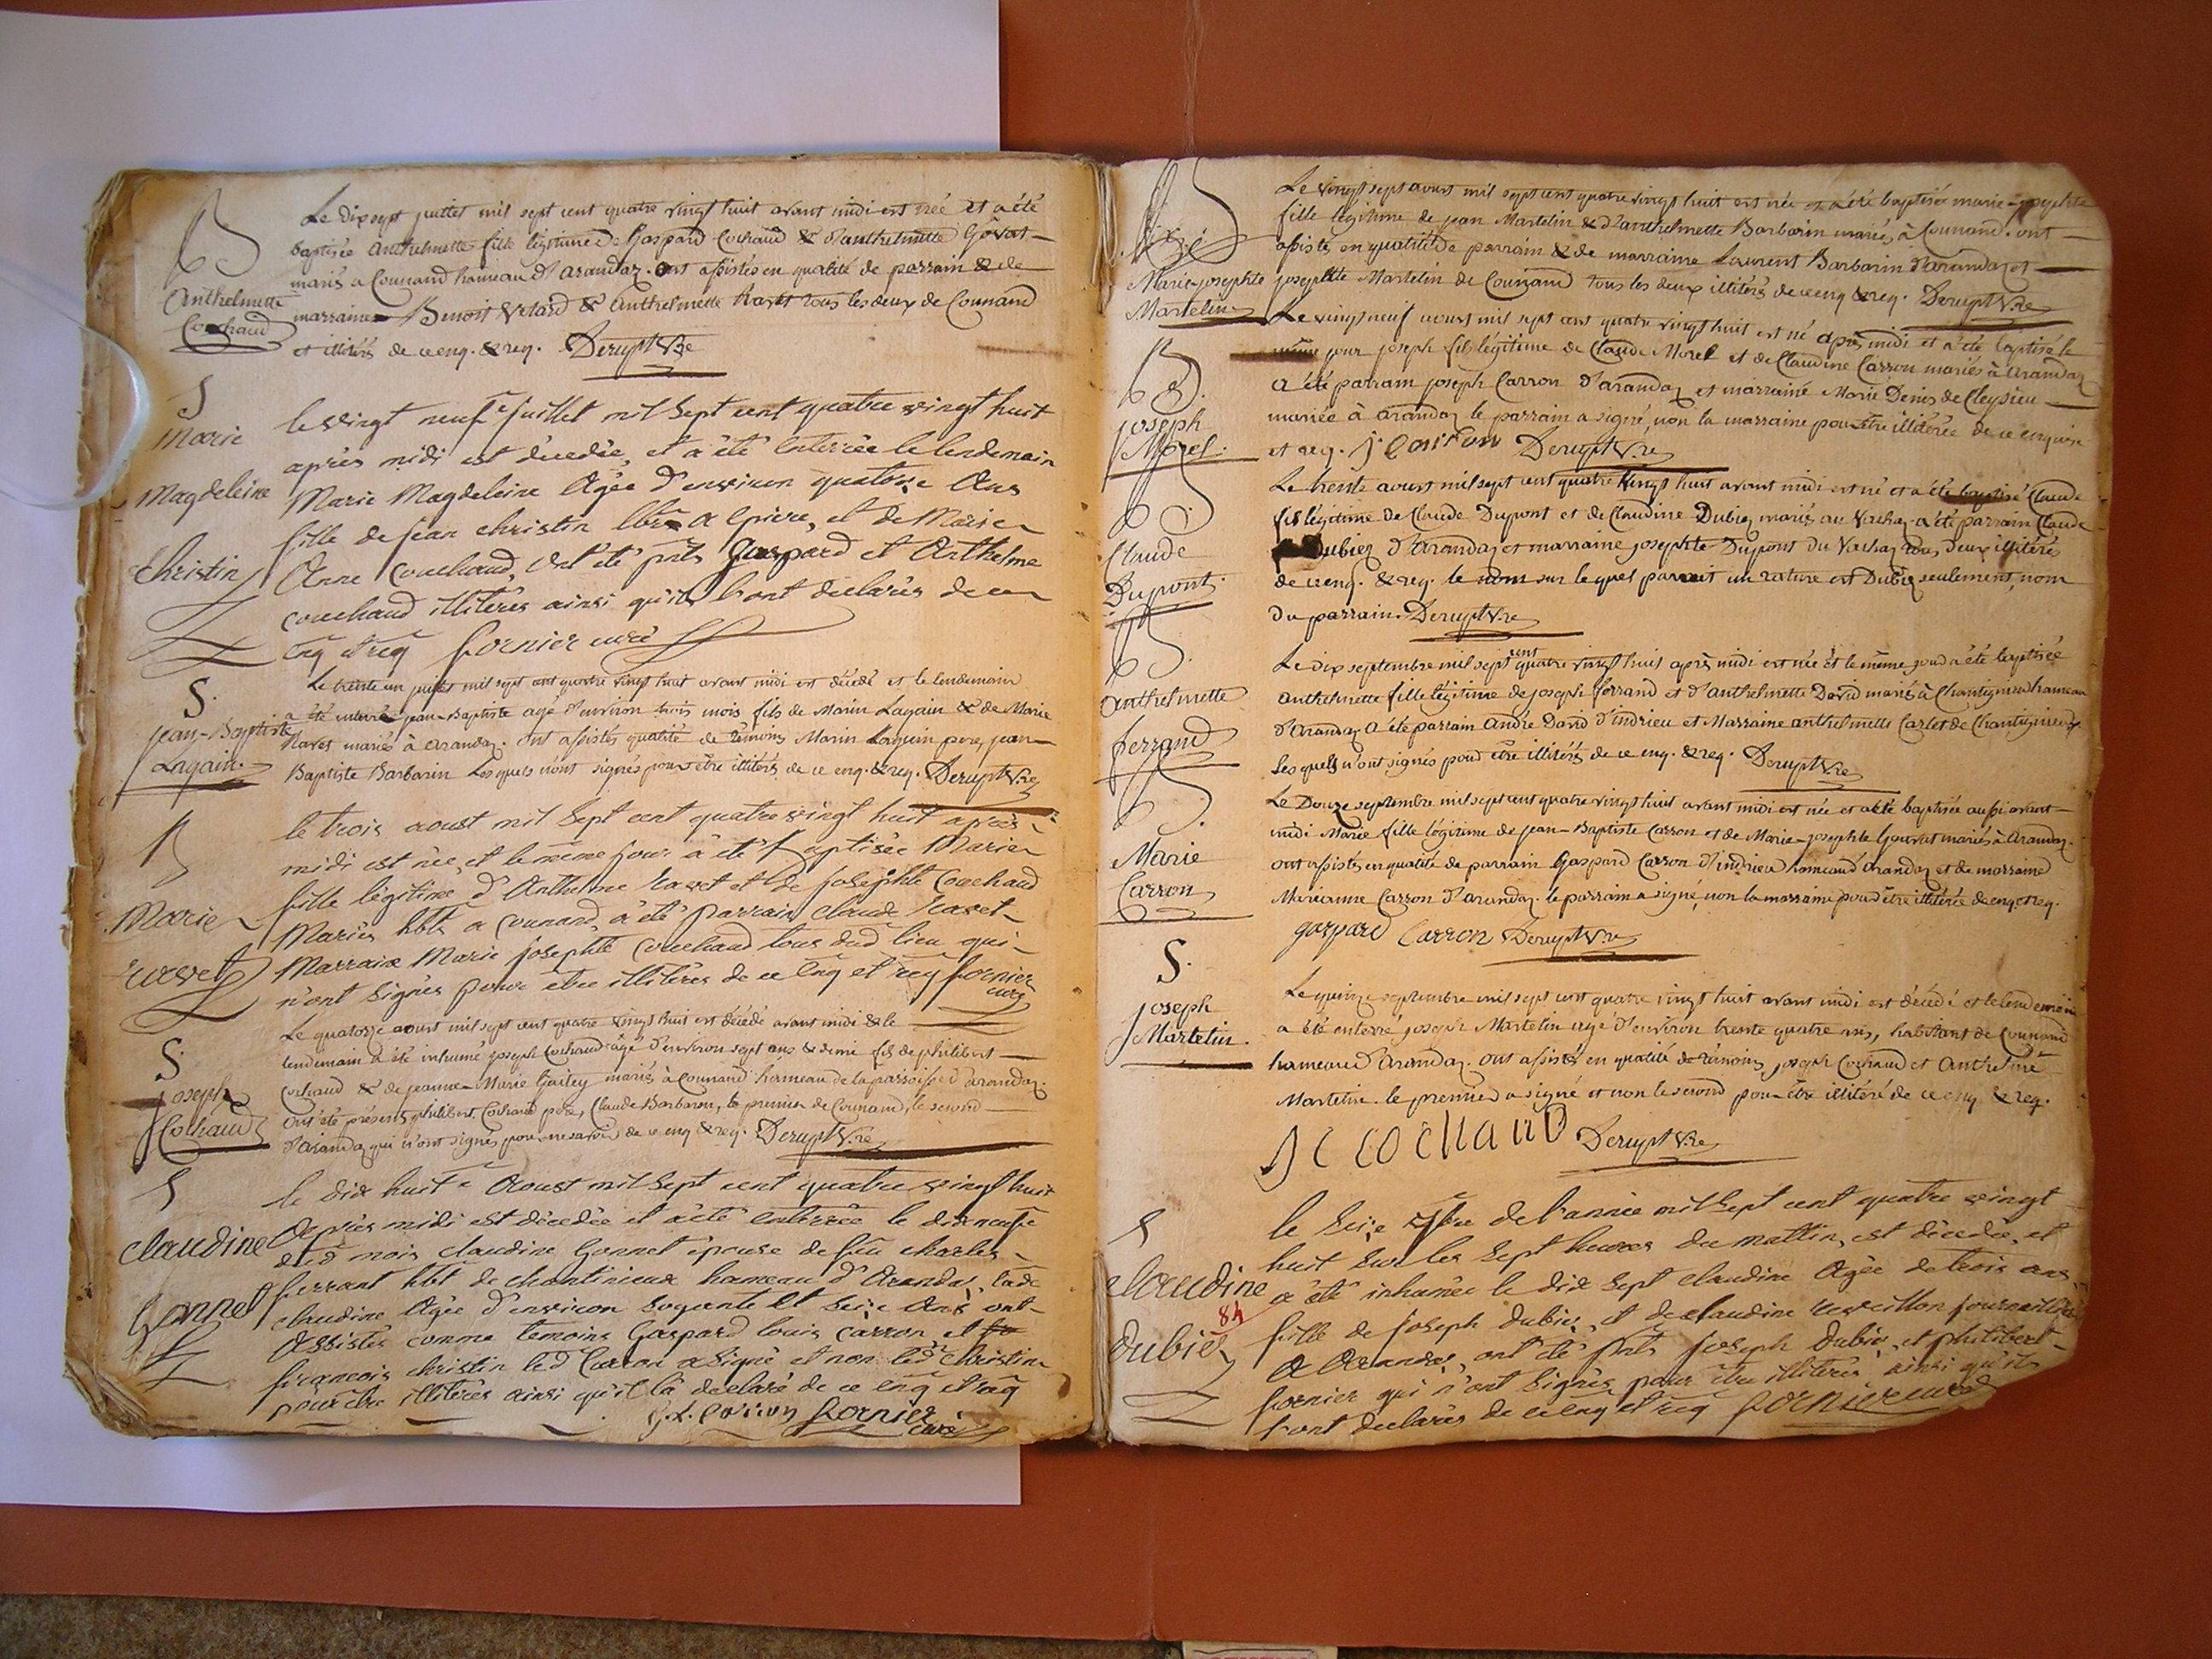 B
Anthelmette
Cochaud
Le dix sept juillet mil sept cent quatre vingt huit avant midi est née et a été
baptisée Anthelmette fille légitime de Gaspard Cochaud & d'anthelmette Govat
mariés a Counand hameau d'arandaz. ont assistés en qualité de parrain & de
marraine Benoit Vétard & Anthelmette Ravet tous les deux de Counand
et illitérés de ce enq. & req. Derupt V.re
S
Marie
Magdeleine
Christin
le vingt neufe juillet mil Sept cent quatre vingt huit
après midi est décedée, et a été Enterrée le lendemain
Marie Magdeleine Agée d'environ quatorze Ans
fille de jean christin lbr a lpierre, et de Marie
Anne Couchaud, ont été prts Gaspard et Anthelme
couchaud illitérés ainsi qu'ils l'ont declarés de ce
Enq et req fornier curé
S.
jean-Baptiste
Lagain.
Le trente un juillet mil sept cent quatre vingt huit avant midi est décédé et le lendemain
a été enterré jean-Baptiste agé d'environ trois mois fils de Marin Lagain & de Marie
Ravet mariés à arandaz. ont assistés qualité de témoins Marin Laguin pere, jean
Baptiste Barbarin Lesquels n'ont signés pour être illitérés de ce enq. & req. Derupt V.re
B
Marie
ravet
le trois aoust mil Sept cent quatre vingt huit après
midi est née, et le même jour a été Baptisée Marie
fille légitime d'Anthelme ravet et de josephte Couchaud
Mariés hbts a Counand, a été parrain claude ravet
Marraine Marie josephte couchaud tous dud lieu qui
n'ont Signés pour etre illitérés de ce Enq et req fornier
curé
S.
joseph
Cochaud
Le quatorze aoust mil sept cent quatre vingt huit est décédé avant midi & le
lendemain a été inhumé joseph Cochaud âgé d'environ sept ans & demi fils de philibert
Cochaud & de jeanne-Marie Guiley mariés à Counand hameau de la paroisse d'arandaz.
ont été présents philibert Cochaud pere, Claude Barbaron, le premier de Counand, le second
d'arandaz qui n'ont signés pour ne savoir de ce enq & req. Derupt V.re
S
claudine
Gonnet
le dix huite Aoust mil Sept cent quatre vingt huit
Après midi est décedée et a été Enterrée le dixneufe
dud mois claudine Gonnet épouse de feu charles
ferrant hbt de chantinieux hameau d'Arandas, lade
claudine Agée d'environ Soyante Et Seize Ans ont
Assistés comme temoins Gaspard louis carron, et
françois christin led Carron a Signé et non led christin
pour être illitérés ainsi qu'il l'a declaré de ce enq et req
G.L. Carron fornier
curé
B
Marie-josephte
Martelin
Le vingt sept aoust mil sept cent quatre vingt huit est née et a été baptisée marie-josephte
fille légitime de jean Martelin & d'anthelmette Barbarin mariés à Counand. ont
assisté en qualité de parrain & de marraine Laurent Barbarin d'arandaz et
josephte Martelin de Counand tous les deux illitérés de ce enq & req. Derupt V.re
B
joseph
Morel.
Le vingt neuf aoust mil sept cent quatre vingt huit est né après midi et a été baptisé le
même jour joseph fils légitime de Claude Morel et de Claudine Carron mariés à arandaz
a été parrain joseph Carron d'arandaz et marraine Marie Denis de Cleysieu
mariée à arandaz le parrain a signé, non la marraine pour être illitérée de ce enquise
et req. J Carron Derupt V.re
B
Claude
Dupont.
Le trente aoust mil sept cent quatre vingt huit avant midi est né et a été baptisé Claude
fils légitime de Claude Dupont et de Claudine Dubiez mariés au Vachaz. a été parrain Claude
Dubiez d'arandaz et marraine josephte Dupont du Vachaz tous deux illitérés
de ce enq. & req. le nom sur lequel paroit un rature est Dubiez seulement, nom
du parrain. Derupt V.re
B
Anthelmette
ferrand
Le dix septembre mil sept cent quatre vingt huit après midi est née et le même jour a été baptisée
anthelmette fille légitime de joseph ferrand et d'anthelmette David mariés à Chantignieu hameau
d'arandaz a été parrain andre David d'indrieu et Marraine anthelmette Carlet de Chantignieu
Lesquels n'ont signés pour être illitérés de ce enq. & req. Derupt V.re
B
Marie
Carron
Le Douze septembre mil sept cent quatre vingt huit avant midi est née et a été baptisée aussi avant
midi Marie fille légitime de jean-Baptiste Carron et de Marie-josephte Gouvat mariés à arandaz.
ont assistés en qualité de parrain Gaspard Carron d'indrieu hameau d'arandaz et de marraine
Marianne Carron d'arandaz. le parrain a signé, non la marraine pour être illitérée de enq et req.
gaspard Carron Derupt V.re
S.
joseph
Martelin.
Le quinze septembre mil sept cent quatre vingt huit avant midi est décédé et le lendemain
a été enterré joseph Martelin agé d'environ trente quatre ans, habitant de Counand
hameau d'arandaz. ont assistés en qualité de témoins, joseph Cochaud et Anthelme
Martelin. le premier a signé et non le second pour être illitéré de ce enq & req.
J C COCHAUD Derupt V.re
S
Claudine
84
Dubiez
le Seize 7bre de l'année mil Sept cent quatre vingt
huit Sur les Sept heures du mattin, est décedée, et
a été inhumée le dix Sept claudine Agée de trois ans,
fille de joseph Dubiez, et de claudine
a Arandas, ont été prts joseph Dubiez, et philibert
fornier qui n'ont Signés pour être illitérés ainsi qu'ils
l'ont declarés de ce enq et req fornier curé